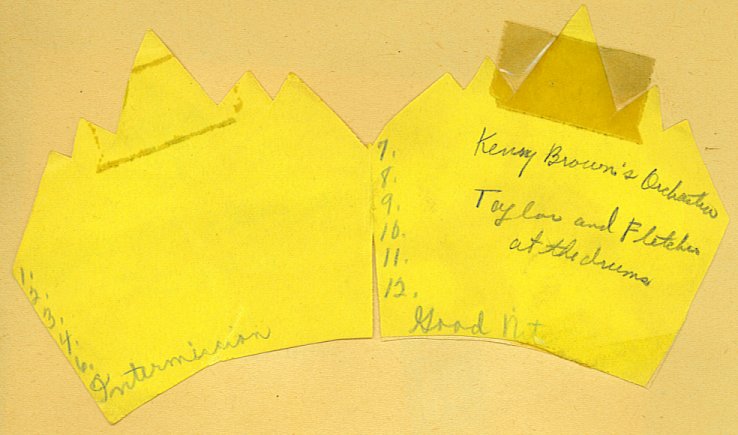 1.
2.
3.
4.
6.
Intermission
7.
8.
9.
10.
11.
12.
Good Nit
Kenny Brown's Orchestra
Taylor and Fletcher
at the drums